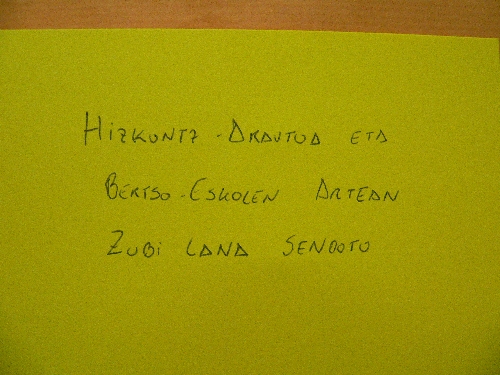 HIZKUNTZ-ARAUTUA ETA
BERTSO-ESKOLEN ARTEAN
ZUBI LANA SENDOTU